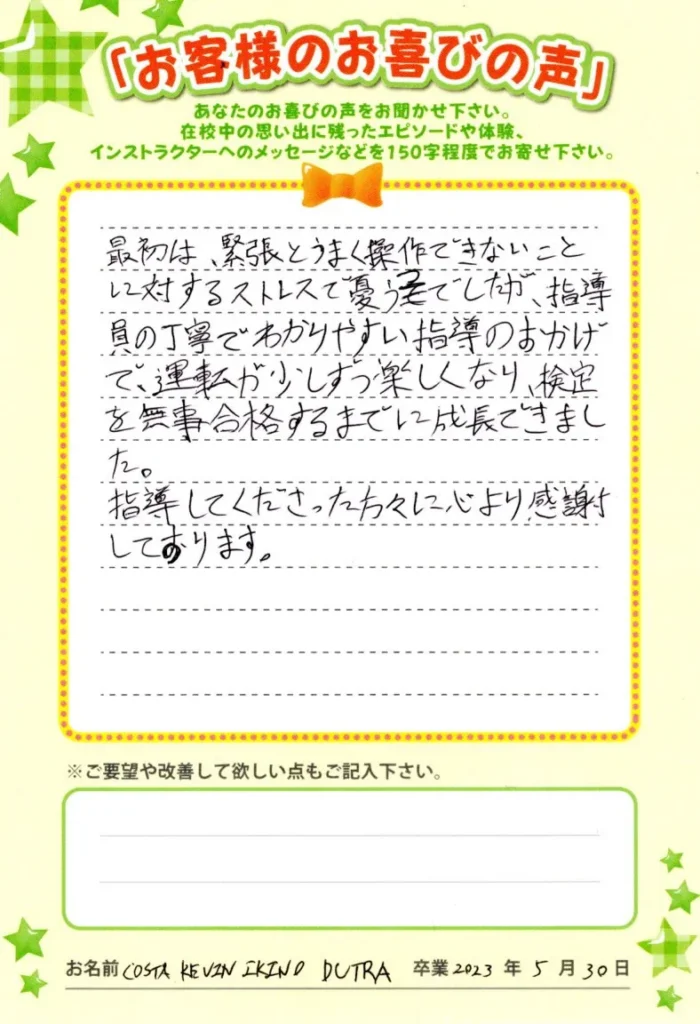 「お客様のお喜びの声」
あなたのお喜びの声をお聞かせ下さい。
在校中の思い出に残ったエピソードや体験、
インストラクターへのメッセージなどを150字程度でお寄せ下さい。
最初は、緊張とうまく操作できないこと
に対するストレスで憂うつでしたが、指導
員の丁寧でわかりやすい指導のおかげ
で、運転が少しずつ楽しくなり、検定
を無事合格するまでに成長できまし
た。
指導してくださった方々に心より感謝
しております。
※ご要望や改善して欲しい点もご記入下さい。
お名前 COSTA KEVIN IKINO DUTRA 卒業2023年5月30日